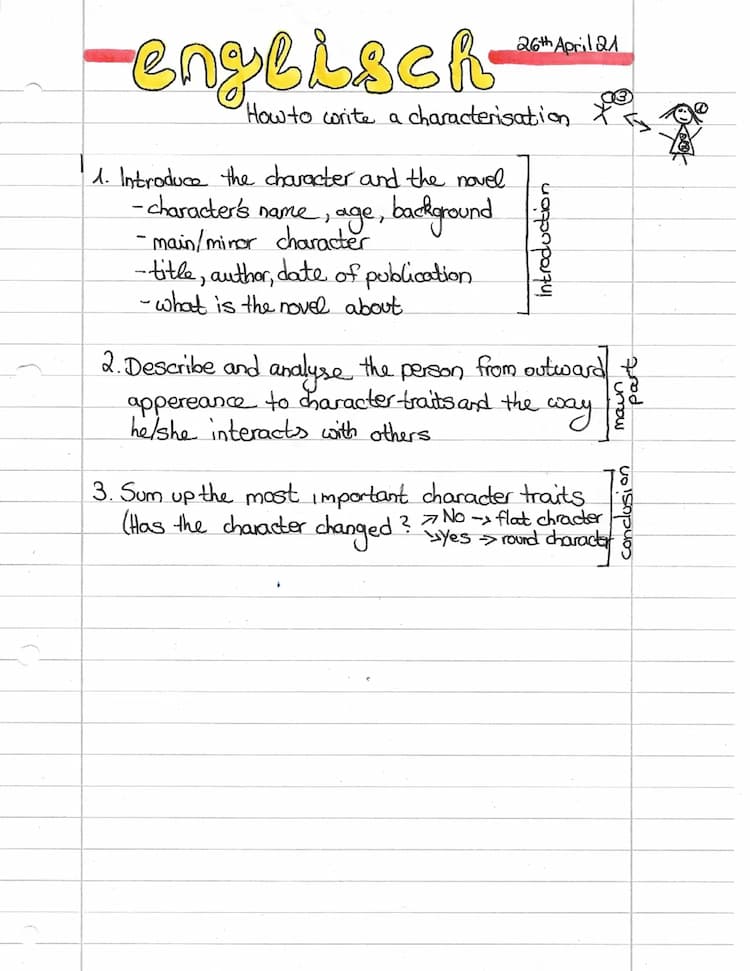 englisch
26th April 21
How to write a characterisation
3
1
2
1. Introduce the character and the novel
- character's name, age, background
- main/minor character
- title, author, date of publication
- what is the novel about
introduction
2. Describe and analyse the person from outward
appereance to character traits and the way
he/she interacts with others
main
part
3. Sum up the most important character traits
(Has the character changed? ↗ No → flat chracter
↘ Yes → round character
conclusion